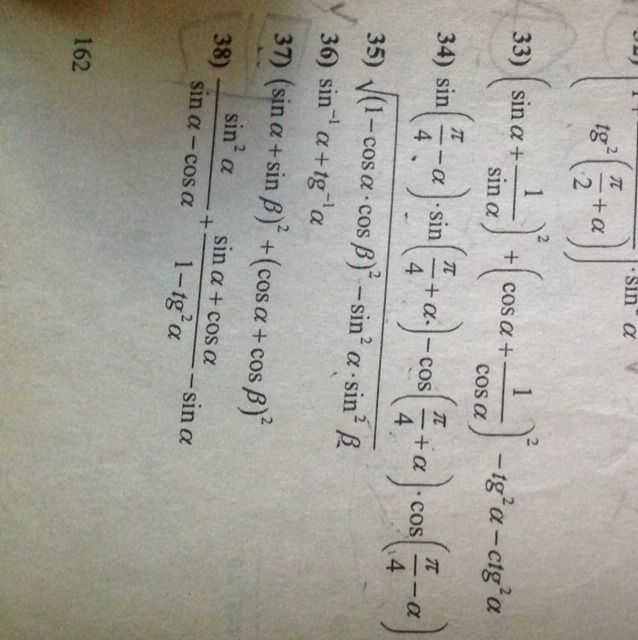 tg²(π/2 + α)
· sin² α
33) (sin α + 1/sin α)² + (cos α + 1/cos α)² − tg² α − ctg² α
34) sin(π/4 − α) · sin(π/4 + α) − cos(π/4 + α) · cos(π/4 − α)
35) √((1 − cos α · cos β)² − sin² α · sin² β)
36) sin⁻¹ α + tg⁻¹ α
37) (sin α + sin β)² + (cos α + cos β)²
38) sin² α/(sin α − cos α) + (sin α + cos α)/(1 − tg² α) − sin α
162